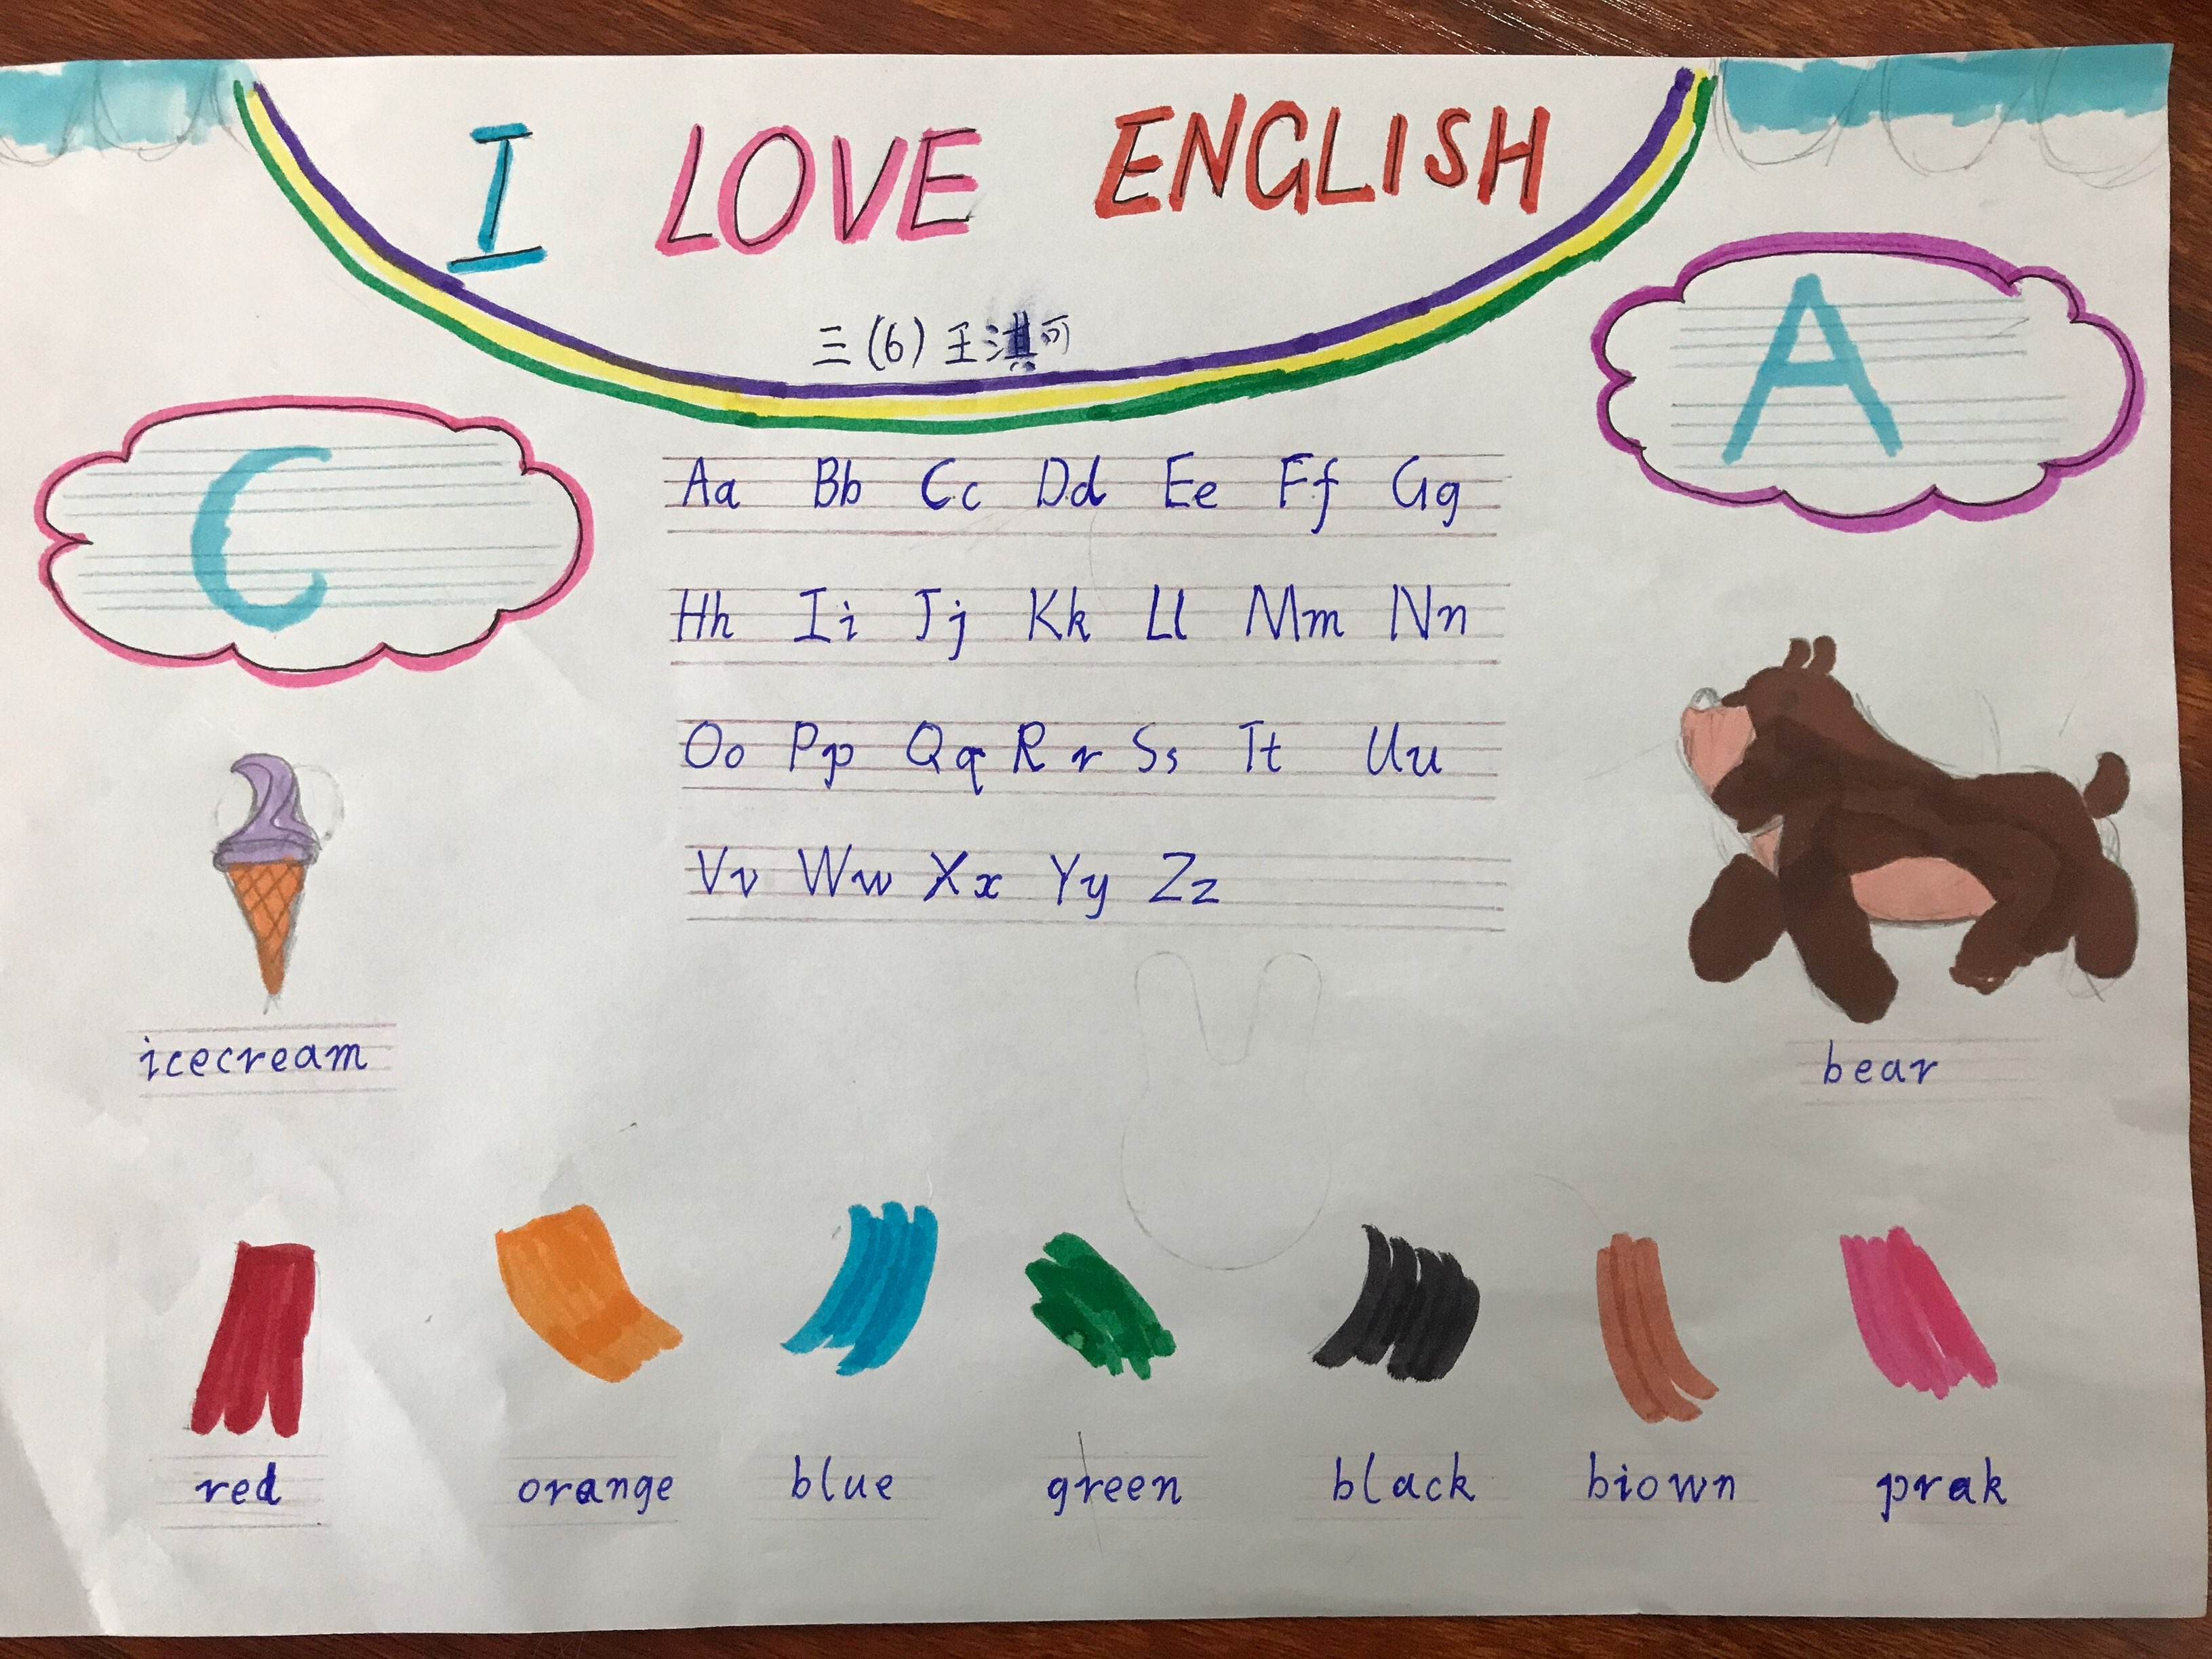 I LOVE ENGLISH
三(6) 王淇可
A
C
Aa Bb Cc Dd Ee Ff Gg
Hh Ii Jj Kk Ll Mm Nn
Oo Pp Qq Rr Ss Tt Uu
Vv Ww Xx Yy Zz
icecream
bear
red orange blue green black biown prak